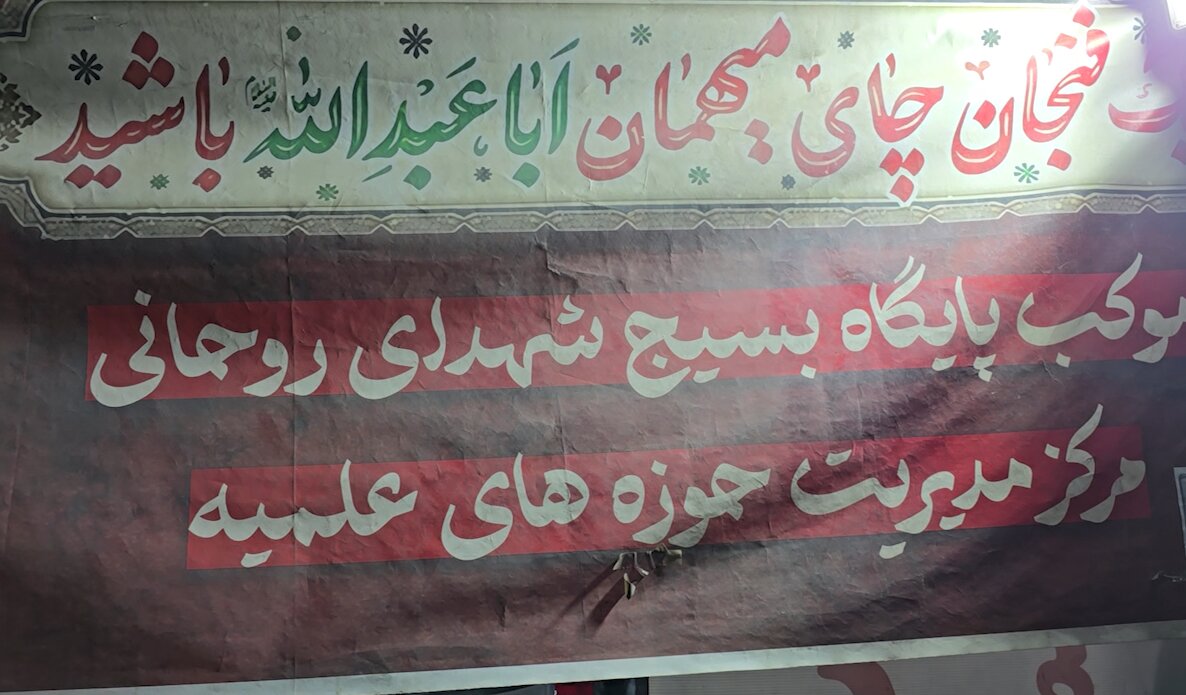 فنجان چای میهمان اباعبدالله باشید
موکب پایگاه بسیج شهدای روحانی
مرکز مدیریت حوزه های علمیه